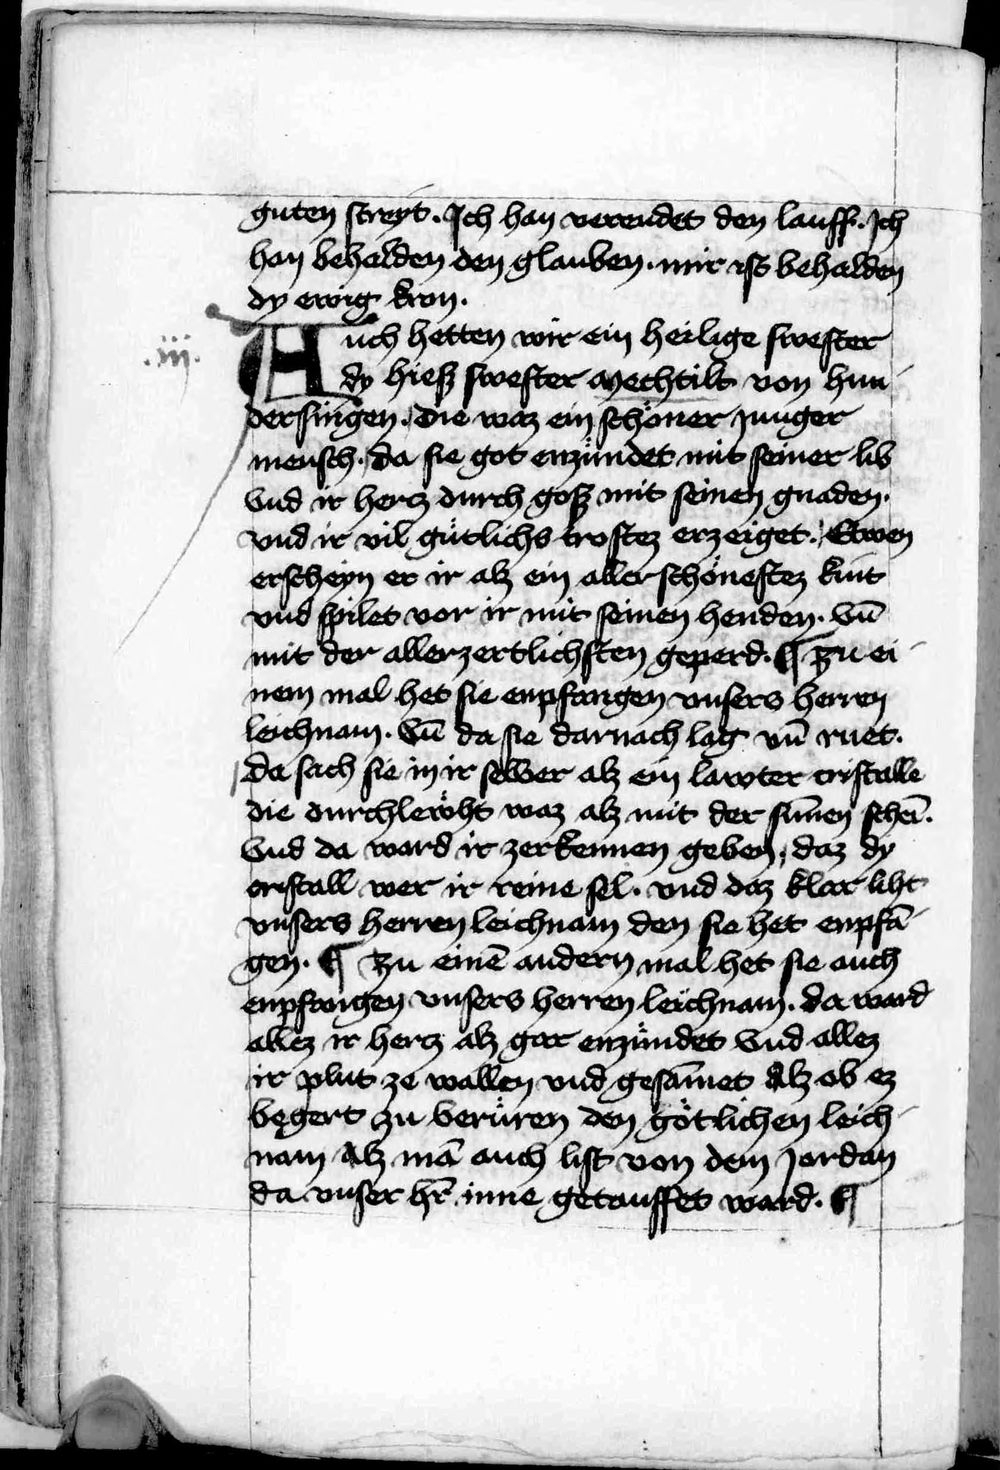 guten streyt. Ich han verendet den lauff. Ich
han behalden den glauben. mir ist behalden
dy ewig kron.
.iij.
Auch hetten wir ein heilige swester
dy hiesz swester Mechtilt von hun-
dersingen. die waz ein schöner junger
mensch. da sie got enzündet mit seiner lib
Vnd ir hercz durch gosz mit seinen gnaden.
vnd ir vil gütlichs trostez erzeiget. Etwen
erscheyn er ir alz ein aller schönestez kint
vnd spilet vor ir mit seinen henden. Vn̄
mit der allerzertlichsten geperd. ¶ Zu ei-
nem mal het sie enpfangen vnsers herren
leichnam. Vn̄ da sie darnach lag vn̄ ruet.
da sach sie in ir selber alz ein lawter cristalle
die durchlewht waz alz mit der su̅nen schei̅.
Vnd da ward ir zerkennen geben, daz dy
cristall wer ir reine sel. vnd daz klar liht
vnsers herren leichnam den sie het enpfa̅-
gen. ¶ Zu eine̅ andern mal het sie auch
enpfangen vnsers herren leichnam. da ward
allez ir hercz alz gar enzündet Vnd allez
ir plut ze wallen vnd gesa̅net Alz ob ez
begert zu berüren den götlichen leich-
nam Alz ma̅ auch list von dem Jordan
da vnser hr̅ inne getauffet ward. ¶